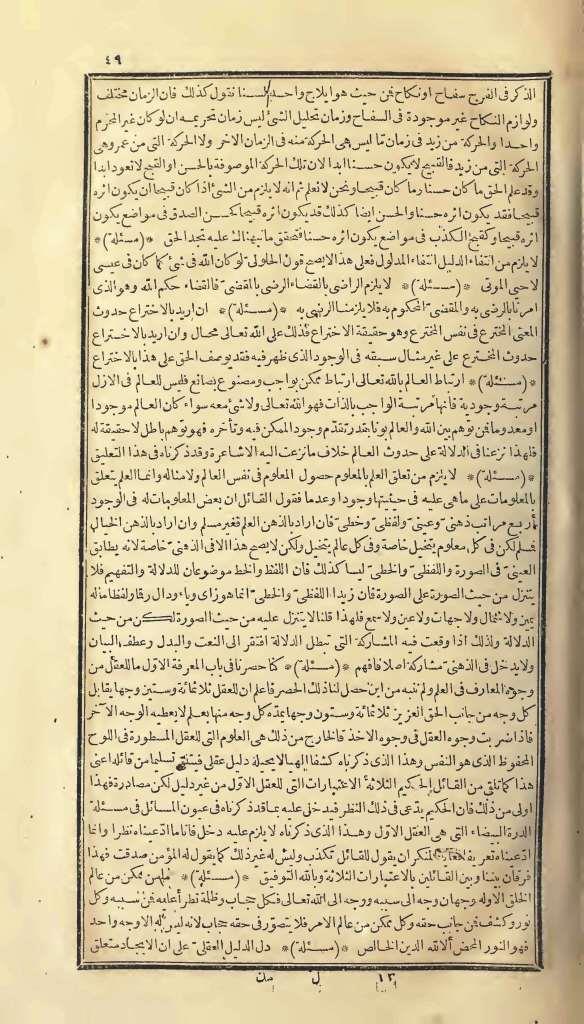 ٤٩
الذكر فى الفرج سفاح او نكاح فمن حيث هو ايلاج واحد لسنا نقول كذلك فان الزمان مختلف
ولوازم النكاح غير موجودة فى السفاح وزمان تحليل الشئ ليس زمان تحريمه ان لو كان عين المحرم
واحدا والحركة من زيد فى زمان تا ليس هى الحركة منه فى الزمان الآخر ولا الحركة التى من عمرو هى
الحركة التى من زيد فالقبيح لا يكون حسنا ابدا لان تلك الحركة الموصوفة بالحسن او القبح لا تعود ابدا
وقد علم الحق ما كان حسنا وما كان قبيحا ونحن لا نعلم ثم انه لا يلزم من الشئ اذا كان قبيحا ان يكون اثره
قبيحا فقد يكون اثره حسنا والحسن ايضا كذلك قد يكون اثره قبيحا كحسن الصدق فى مواضع يكون
اثره قبيحا وكقبح الكذب فى مواضع يكون اثره حسنا فتحقق ما نبهناك عليه تجد الحق * (مسئلة) *
لا يلزم من انتفاء الدليل انتفاء المدلول فعلى هذا لا يصح قول الحلولى لو كان الله فى شئ كما كان فى عيسى
لاحى الموتى * (مسئلة) * لا يلزم الراضى بالقضاء الرضى بالمقضى فالقضاء حكم الله وهو الذى
امرنا بالرضى به والمقضى المحكوم به فلا يلزمنا الرضى به * (مسئلة) * ان اريد بالاختراع حدوث
المعنى المخترع فى نفس المخترع وهو حقيقة الاختراع فذلك على الله تعالى محال وان اريد بالاختراع
حدوث المخترع على غير مثال سبقه فى الوجود الذى ظهر فيه فقد يوصف الحق على هذا بالاختراع
* (مسئلة) * ارتباط العالم بالله تعالى ارتباط ممكن بواجب ومصنوع بصانع فليس للعالم فى الازل
مرتبة وجودية فانها مرتبة الواجب بالذات فهو الله تعالى ولا شئ معه سواء كان العالم موجودا
او معدوما فمن توهم بين الله والعالم بونا يقدر تقدم وجود الممكن فيه وتأخره فهو توهم باطل لا حقيقة له
فلهذا نزعنا فى الدلالة على حدوث العالم خلاف ما نزعت اليه الاشاعرة وقد ذكرناه فى هذا التعليق
* (مسئلة) * لا يلزم من تعلق العلم بالمعلوم حصول المعلوم فى نفس العالم ولا مثاله وانما العلم يتعلق
بالمعلومات على ما هى عليه فى حيثيتها وجودا وعدما فقول القائل ان بعض المعلومات له فى الوجود
أربع مراتب ذهنىّ وعينىّ ولفظىّ وخطىّ فان اراد بالذهن العلم فغير مسلم وان اراد بالذهن الخيال
فمسلم لكن فى كل معلوم يتخيل خاصة وفى كل عالم يتخيل ولكن لا يصح هذا الا فى الذهنىّ خاصة لانه يطابق
العينىّ فى الصورة واللفظىّ والخطىّ ليسا كذلك فان اللفظ والخط موضوعان للدلالة والتفهيم فلا
يتنزل من حيث الصورة على الصورة فان زيدا اللفظىّ والخطىّ انما هو زاى وياء ودال رقما ولفظا ما له
يمين ولا شمال ولا جهات ولا عين ولا سمع فلهذا قلنا لا يتنزل عليه من حيث الصورة لكن من حيث
الدلالة ولذلك اذا وقعت فيه المشاركة التى تبطل الدلالة افتقر الى النعت والبدل وعطف البيان
ولا يدخل فى الذهنىّ مشاركة اصلا فافهم * (مسئلة) * كنا حصرنا فى باب المعرفة الاول ما للعقل من
وجوه المعارف فى العلم ولم ننبه من اين حصل لنا ذلك الحصر فاعلم ان للعقل ثلاثمائة وستين وجها يقابل
كل وجه من جانب الحق العزيز ثلاثمائة وستون وجها يمدّه كل وجه منها بعلم لا يعطيه الوجه الآخر
فاذا ضربت وجوه العقل فى وجوه الاخذ فالخارج من ذلك هى العلوم التى للعقل المسطورة فى اللوح
المحفوظ الذى هو النفس وهذا الذى ذكرناه كشفا الهيا لا يحيله دليل عقلى فيتلقى تسليما من قائله اعنى
هذا كما تلقى من القائل الحكيم الثلاثة الاعتبارات التى للعقل الاول من غير دليل لكن مصادرة فهذا
اولى من ذلك فان الحكيم يدّعى فى ذلك النظر فيدخل عليه بما قد ذكرناه فى عيون المسائل فى مسئلة
الدرة البيضاء التى هى العقل الاول وهذا الذى ذكرناه لا يلزم عليه دخل فانا ما ادّعيناه نظرا وانما
ادّعيناه تعريفا فغاية المنكر ان يقول للقائل تكذب وليس له غير ذلك كما يقول له المؤمن صدقت فهذا
فرقان بيننا وبين القائلين بالاعتبارات الثلاثة وبالله التوفيق * (مسئلة) * ما من ممكن من عالم
الخلق الا وله وجهان وجه الى سببه ووجه الى الله تعالى فكل حجاب وظلمة تطرأ عليه فمن سببه وكل
نور وكشف فمن جانب حقه وكل ممكن من عالم الامر فلا يتصوّر فى حقه حجاب لانه ليس له الا وجه واحد
فهو النور المحض ألا لله الدين الخالص * (مسئلة) * دل الدليل العقلىّ على ان الايجاد متعلق
١٣ ل مك